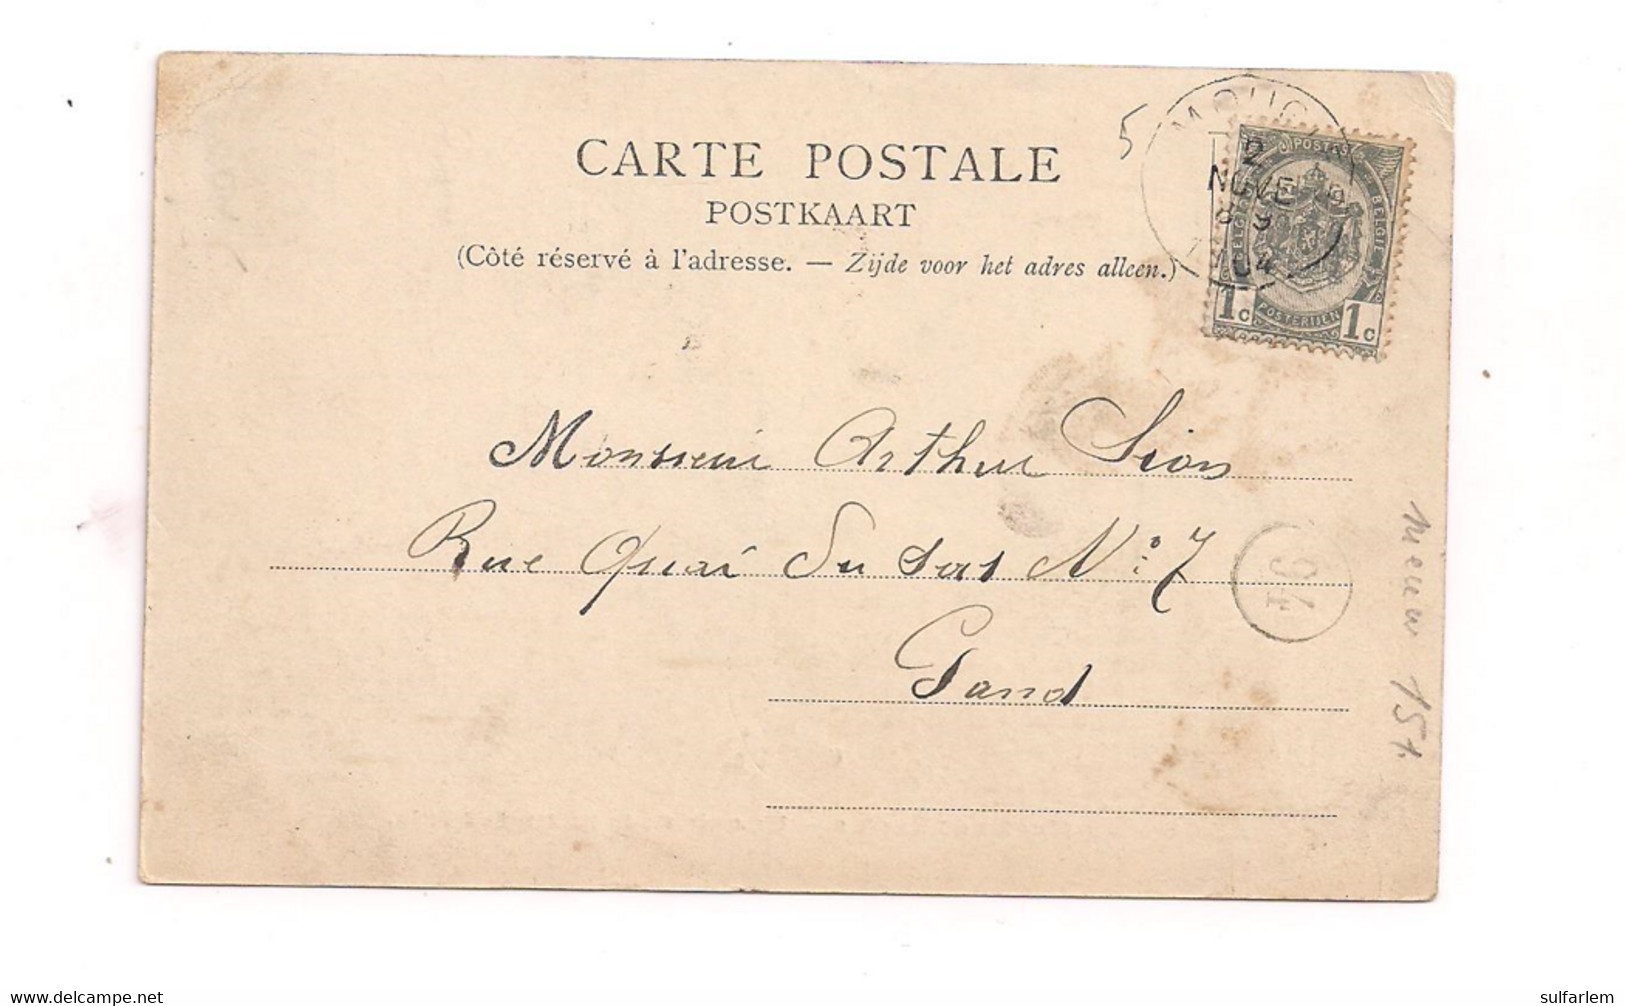 CARTE POSTALE
POSTKAART
(Côté réservé à l'adresse. — Zijde voor het adres alleen.)
5
2
NOVE
8-9
04
POSTES
BELGIE
POSTERIJEN
1c 1c
Monsieur Arthur Sion
Rue Quai du Bas No: 7
Gand
94
15+
sulfarlem